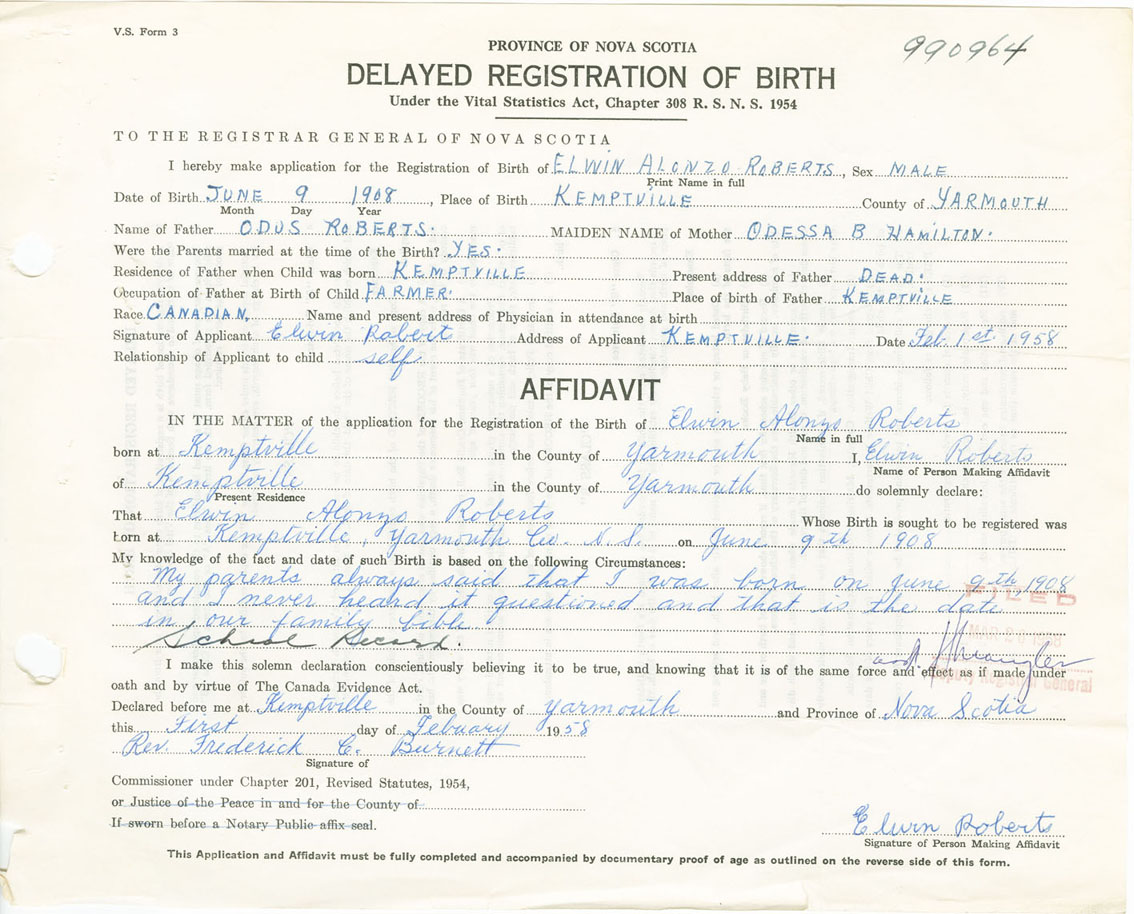 V.S. Form 3
990964
PROVINCE OF NOVA SCOTIA
DELAYED REGISTRATION OF BIRTH
Under the Vital Statistics Act, Chapter 308 R. S. N. S. 1954
TO THE REGISTRAR GENERAL OF NOVA SCOTIA
I hereby make application for the Registration of Birth of ELWIN ALONZO ROBERTS, Sex MALE
Print Name in full
Date of Birth JUNE 9 1908, Place of Birth KEMPTVILLE County of YARMOUTH
Month Day Year
Name of Father ODUS ROBERTS. MAIDEN NAME of Mother ODESSA B HAMILTON.
Were the Parents married at the time of the Birth? YES.
Residence of Father when Child was born KEMPTVILLE Present address of Father DEAD.
Occupation of Father at Birth of Child FARMER. Place of birth of Father KEMPTVILLE
Race CANADIAN. Name and present address of Physician in attendance at birth
Signature of Applicant Elwin Robert Address of Applicant KEMPTVILLE. Date Feb. 1st. 1958
Relationship of Applicant to child self.
AFFIDAVIT
IN THE MATTER of the application for the Registration of the Birth of Elwin Alonzo Roberts
Name in full
born at Kemptville in the County of Yarmouth I, Elwin Roberts
Name of Person Making Affidavit
of Kemptville in the County of Yarmouth do solemnly declare:
Present Residence
That Elwin Alonzo Roberts Whose Birth is sought to be registered was
born at Kemptville, Yarmouth Co. N.S. on June 9th 1908
My knowledge of the fact and date of such Birth is based on the following Circumstances:
My parents always said that I was born on June 9th, 1908
and I never heard it questioned and that is the date
in our family bible.
FILED
School Record.
I make this solemn declaration conscientiously believing it to be true, and knowing that it is of the same force and effect as if made under
Deputy Registrar General
oath and by virtue of The Canada Evidence Act.
Declared before me at Kemptville in the County of Yarmouth and Province of Nova Scotia
this First day of Febuary 1958
Rev. Frederick C. Burnett
Signature of
Commissioner under Chapter 201, Revised Statutes, 1954,
or Justice of the Peace in and for the County of
If sworn before a Notary Public affix seal.
Elwin Roberts
Signature of Person Making Affidavit
This Application and Affidavit must be fully completed and accompanied by documentary proof of age as outlined on the reverse side of this form.